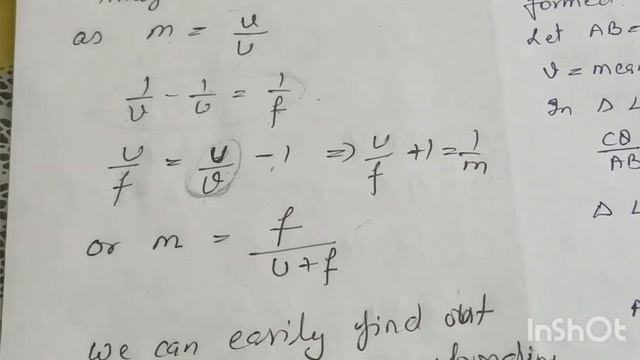 as m = v/u
1/v - 1/u = 1/f
u/f = u/v - 1 ⇒ u/f + 1 = 1/m
or m = f/(u+f)
we can easily find out
formed.
Let AB =
v =
In Δ
CQ/AB
Δ
InShOt